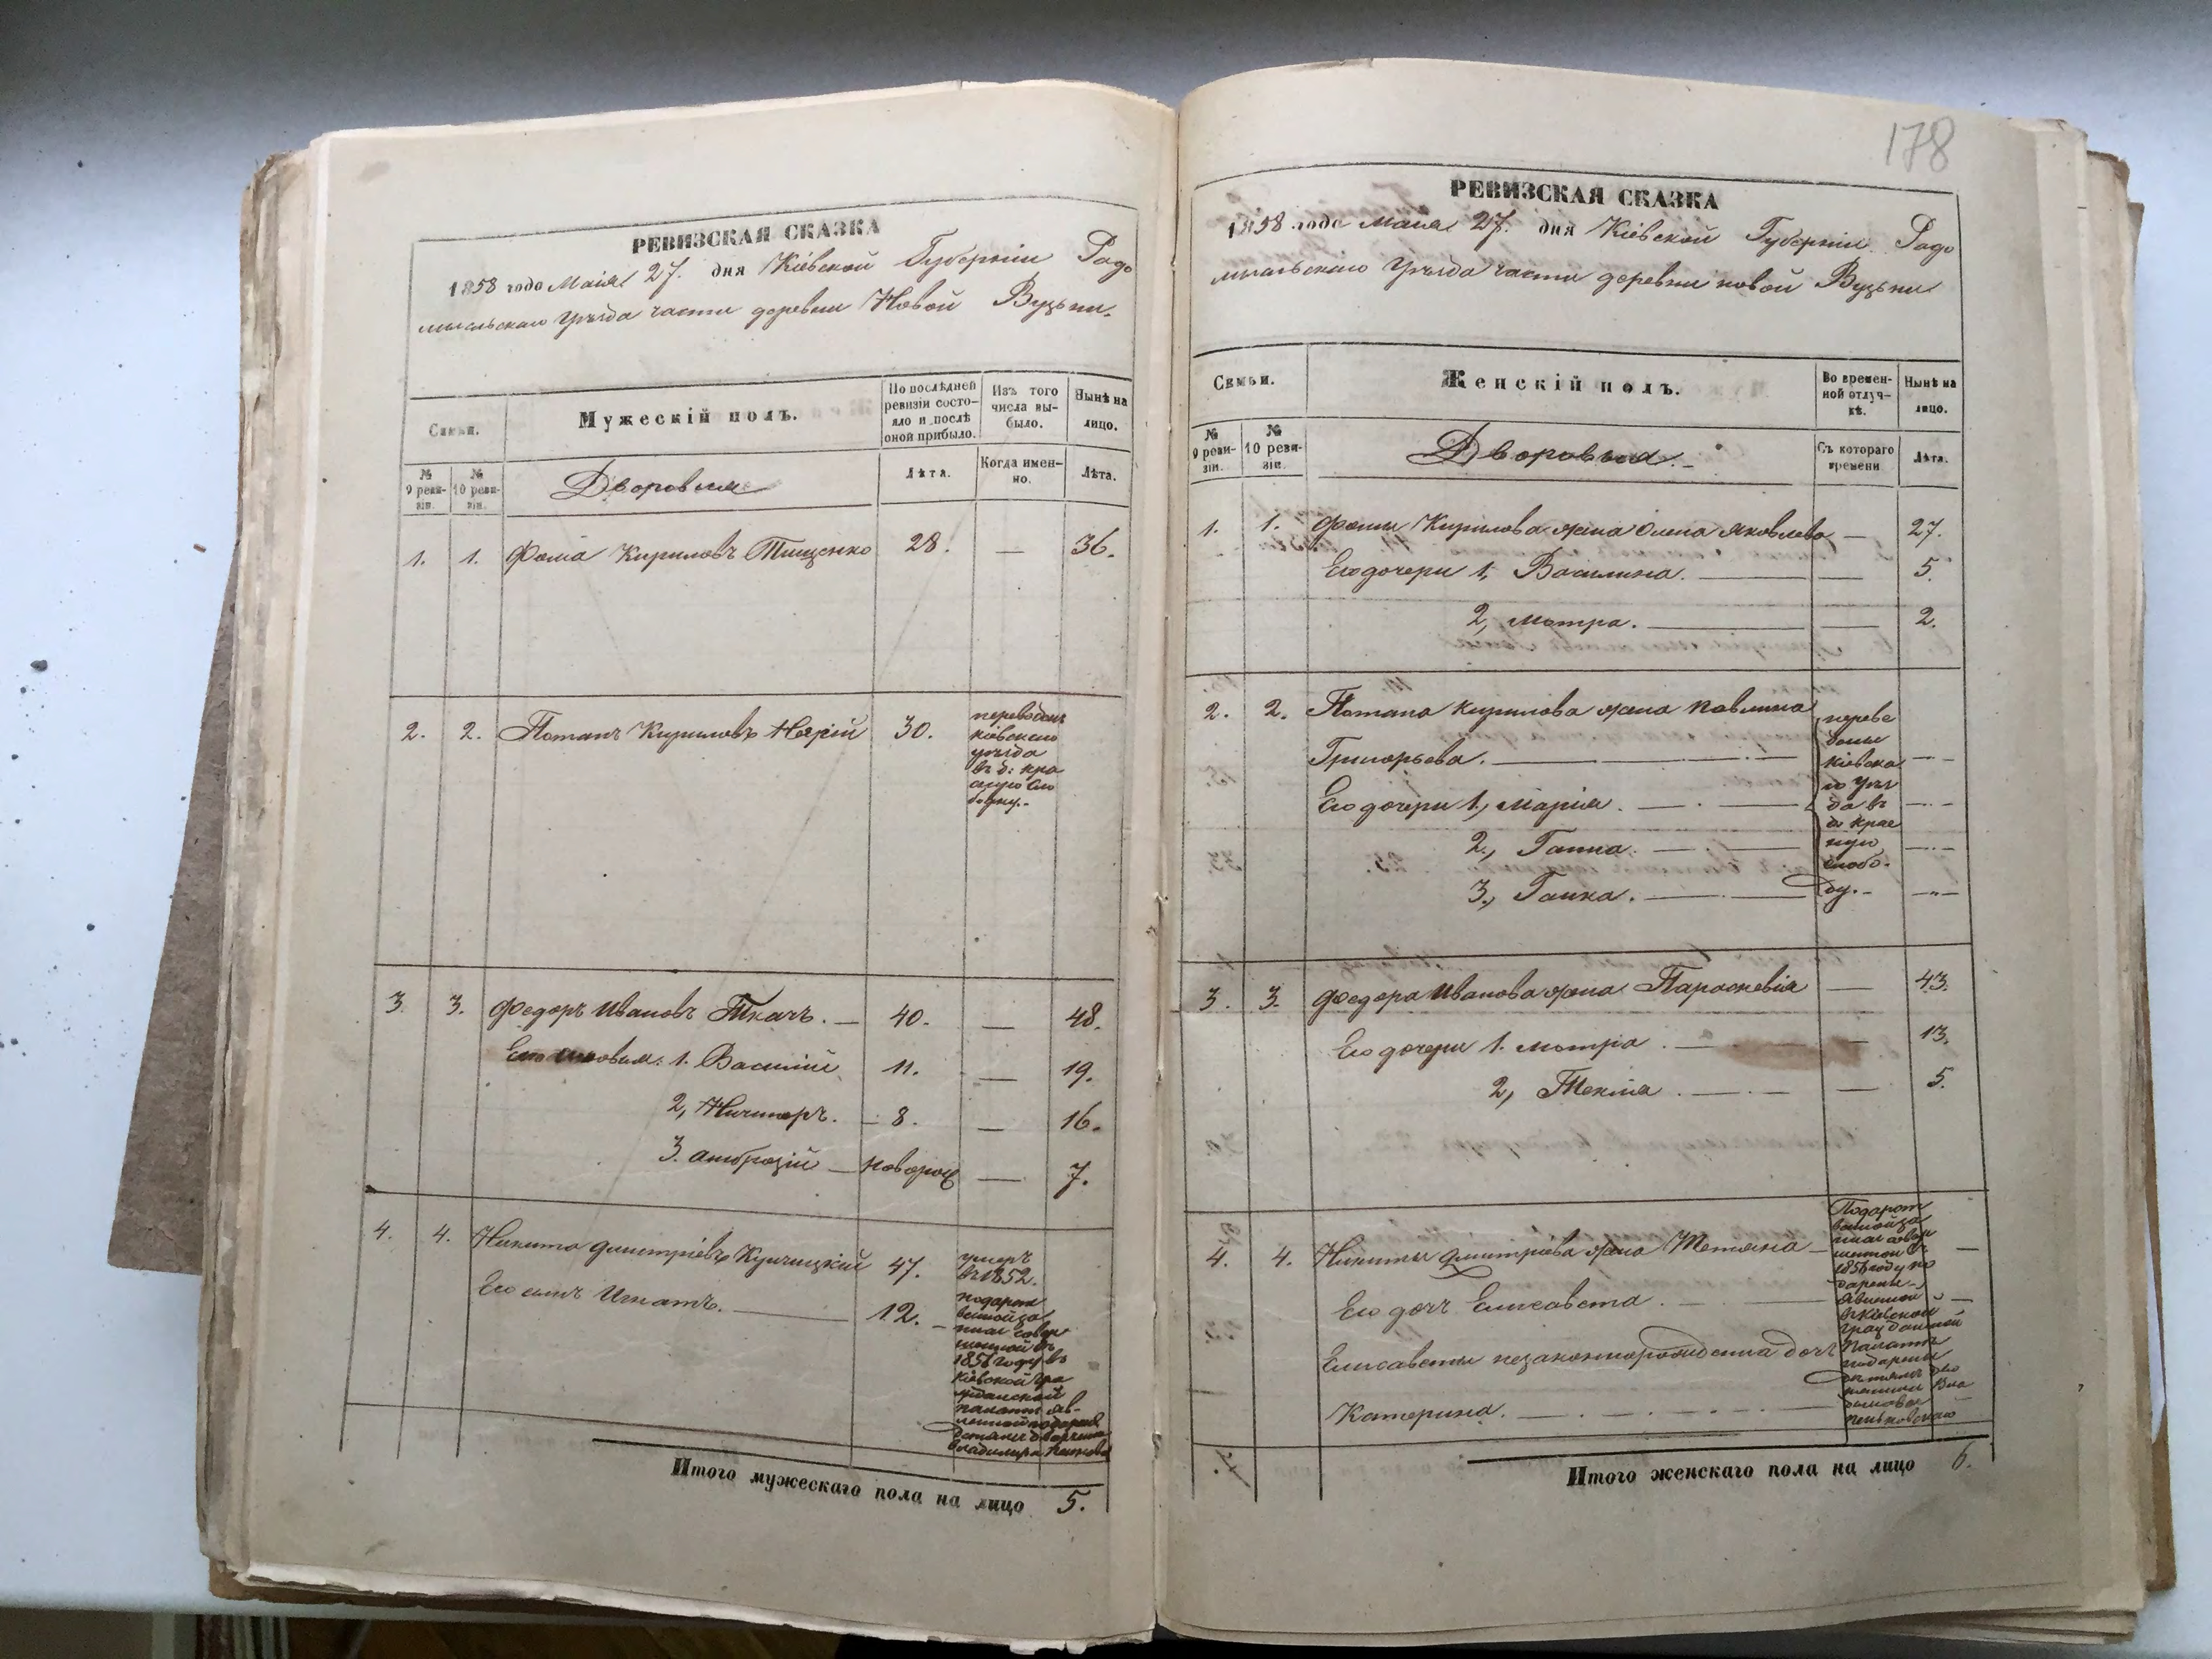 РЕВИЗСКАЯ СКАЗКА
1858 года Маія 27. дня Кіевской Губерніи Радо
мысльскаго Уѣзда части деревни Новой Вузьни.
Семьи.
Мужескій полъ.
По послѣдней ревизіи состояло и послѣ оной прибыло.
Изъ того числа выбыло.
Нынѣ на лицо.
№ 9 ревизіи.
№ 10 ревизіи.
Дворовые
Лѣта.
Когда именно.
Лѣта.
1. 1. Фома Кириловъ Тищенко 28. — 36.
2. 2. Потапъ Кириловъ 30.
переведенъ
кіевскаго
уѣзда
въ д: кра
сную сло
бодку.-
3. 3. Федоръ Ивановъ Ткачъ. — 40. — 48.
Его сыновья: 1. Василій 11. — 19.
2, Ничипоръ. — 8. — 16.
3. Амброзій — новорож — 7.
4. 4. Никита Дмитріевъ Кулицкій 47.
умеръ
въ 1852.
Его сынъ Игнатъ. — 12. —
подарен
1856 году въ
кіевской гра
жданской
палатѣ яв-
ленной
Владимира
Итого мужескаго пола на лицо 5.
178
РЕВИЗСКАЯ СКАЗКА
1858 года Маія 27. дня Кіевской Губерніи Радо
мысльскаго Уѣзда части деревни новой Вузьни
Семьи.
Женскій полъ.
Во временной отлучкѣ.
Нынѣ на лицо.
№ 9 ревизіи.
№ 10 ревизіи.
Дворовыя.
Съ котораго времени
Лѣта.
1. 1. Фомы Кирилова жена Олена Яковлева — 27.
Его дочери 1, Василина. — — 5.
2, Мотра. — — 2.
2. 2. Потапа Кирилова жена Павлина
Григорьева. —
Его дочери 1, Марія. —
2., Ганна. —
3., Ганка. —
переве
дены
кіевска
го Уѣз
да въ
д: крас
ную
слобо-
ду.-
3. 3. Федора Иванова жена Параскевія — 43.
Его дочери 1. Мотря. — — 13.
2, Текля. — — 5.
4. 4. Никиты Дмитріева жена Тетяна — —
Его дочь Елисавета. — —
Елисаветы незаконнорожденна дочь
Катерина. —
1856 году по
дарены
явленной
въ Кіевской
гражданской
Палатѣ
Итого женскаго пола на лицо 6.